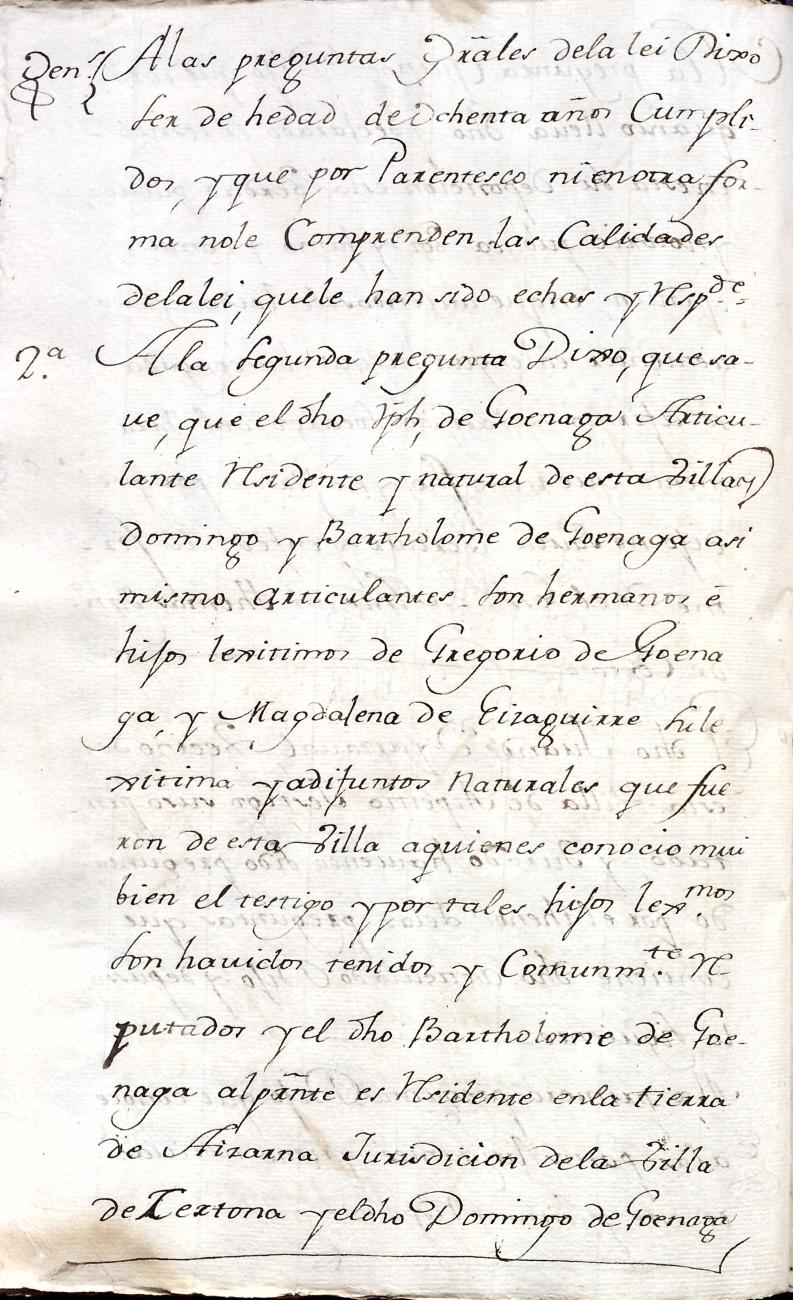 Gen.s A las preguntas Grãles dela lei Dixo
ser de hedad de ochenta años Cumpli-
dos, y que por Parentesco ni enotra for-
ma nole Comprenden las Calidades
delalei, quele han sido echas y Respde
2.a A la segunda pregunta Dixo, que sa-
ve, que el dho Jph, de Goenaga Articu-
lante Residente y natural de esta Villa y
Domingo y Bartholome de Goenaga asi
mismo articulantes son hermanos é
hijos lexitimos de Gregorio de Goena
ga, y Magdalena de Eizaguirre su le-
xitima y adifuntos Naturales que fue-
ron de esta Villa aquienes conocio mui
bien el testigo y por tales hijos lex.mos
son havidos tenidos y Comunm.te Re-
putados y el dho Bartholome de Goe-
naga alprñte es Residente enla tierra
de Aizarna Jurisdicion dela Villa
de Zestona y eldho Domingo de Goenaga